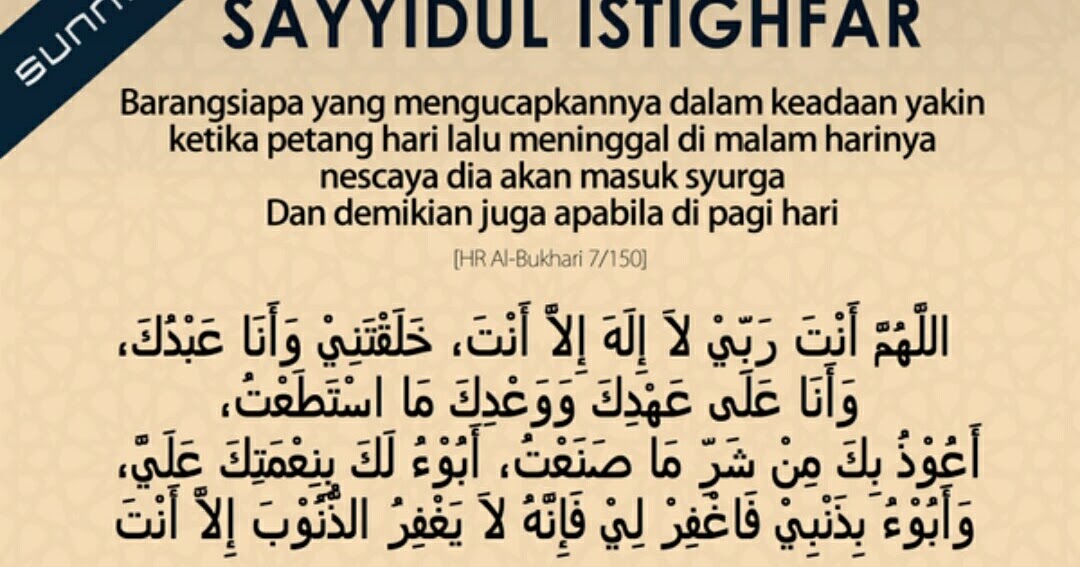 SAYYIDUL ISTIGHFAR
Barangsiapa yang mengucapkannya dalam keadaan yakin
ketika petang hari lalu meninggal di malam harinya
nescaya dia akan masuk syurga
Dan demikian juga apabila di pagi hari
[HR Al-Bukhari 7/150]
اللَّهُمَّ أَنْتَ رَبِّيْ لاَ إِلَهَ إِلاَّ أَنْتَ، خَلَقْتَنِيْ وَأَنَا عَبْدُكَ،
وَأَنَا عَلَى عَهْدِكَ وَوَعْدِكَ مَا اسْتَطَعْتُ،
أَعُوْذُ بِكَ مِنْ شَرِّ مَا صَنَعْتُ، أَبُوْءُ لَكَ بِنِعْمَتِكَ عَلَيَّ،
وَأَبُوْءُ بِذَنْبِيْ فَاغْفِرْ لِيْ فَإِنَّهُ لاَ يَغْفِرُ الذُّنُوْبَ إِلاَّ أَنْتَ